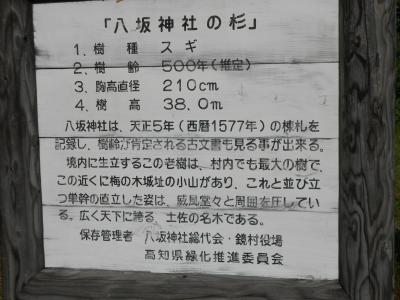 「八坂神社の杉」
1. 樹種 スギ
2. 樹齢 500年(推定)
3. 胸高直径 210cm
4. 樹高 38.0m
八坂神社は、天正5年(西暦1577年)の棟札を
記録し、樹齢が肯定される古文書も見る事が出来る。
境内に生立するこの老樹は、村内でも最大の樹で、
この近くに梅の木城址の小山があり、これと並び立
つ単幹の直立した姿は、威風堂々と周囲を圧してい
る。広く天下に誇る、土佐の名木である。
保存管理者 八坂神社総代会・鏡村役場
高知県緑化推進委員会